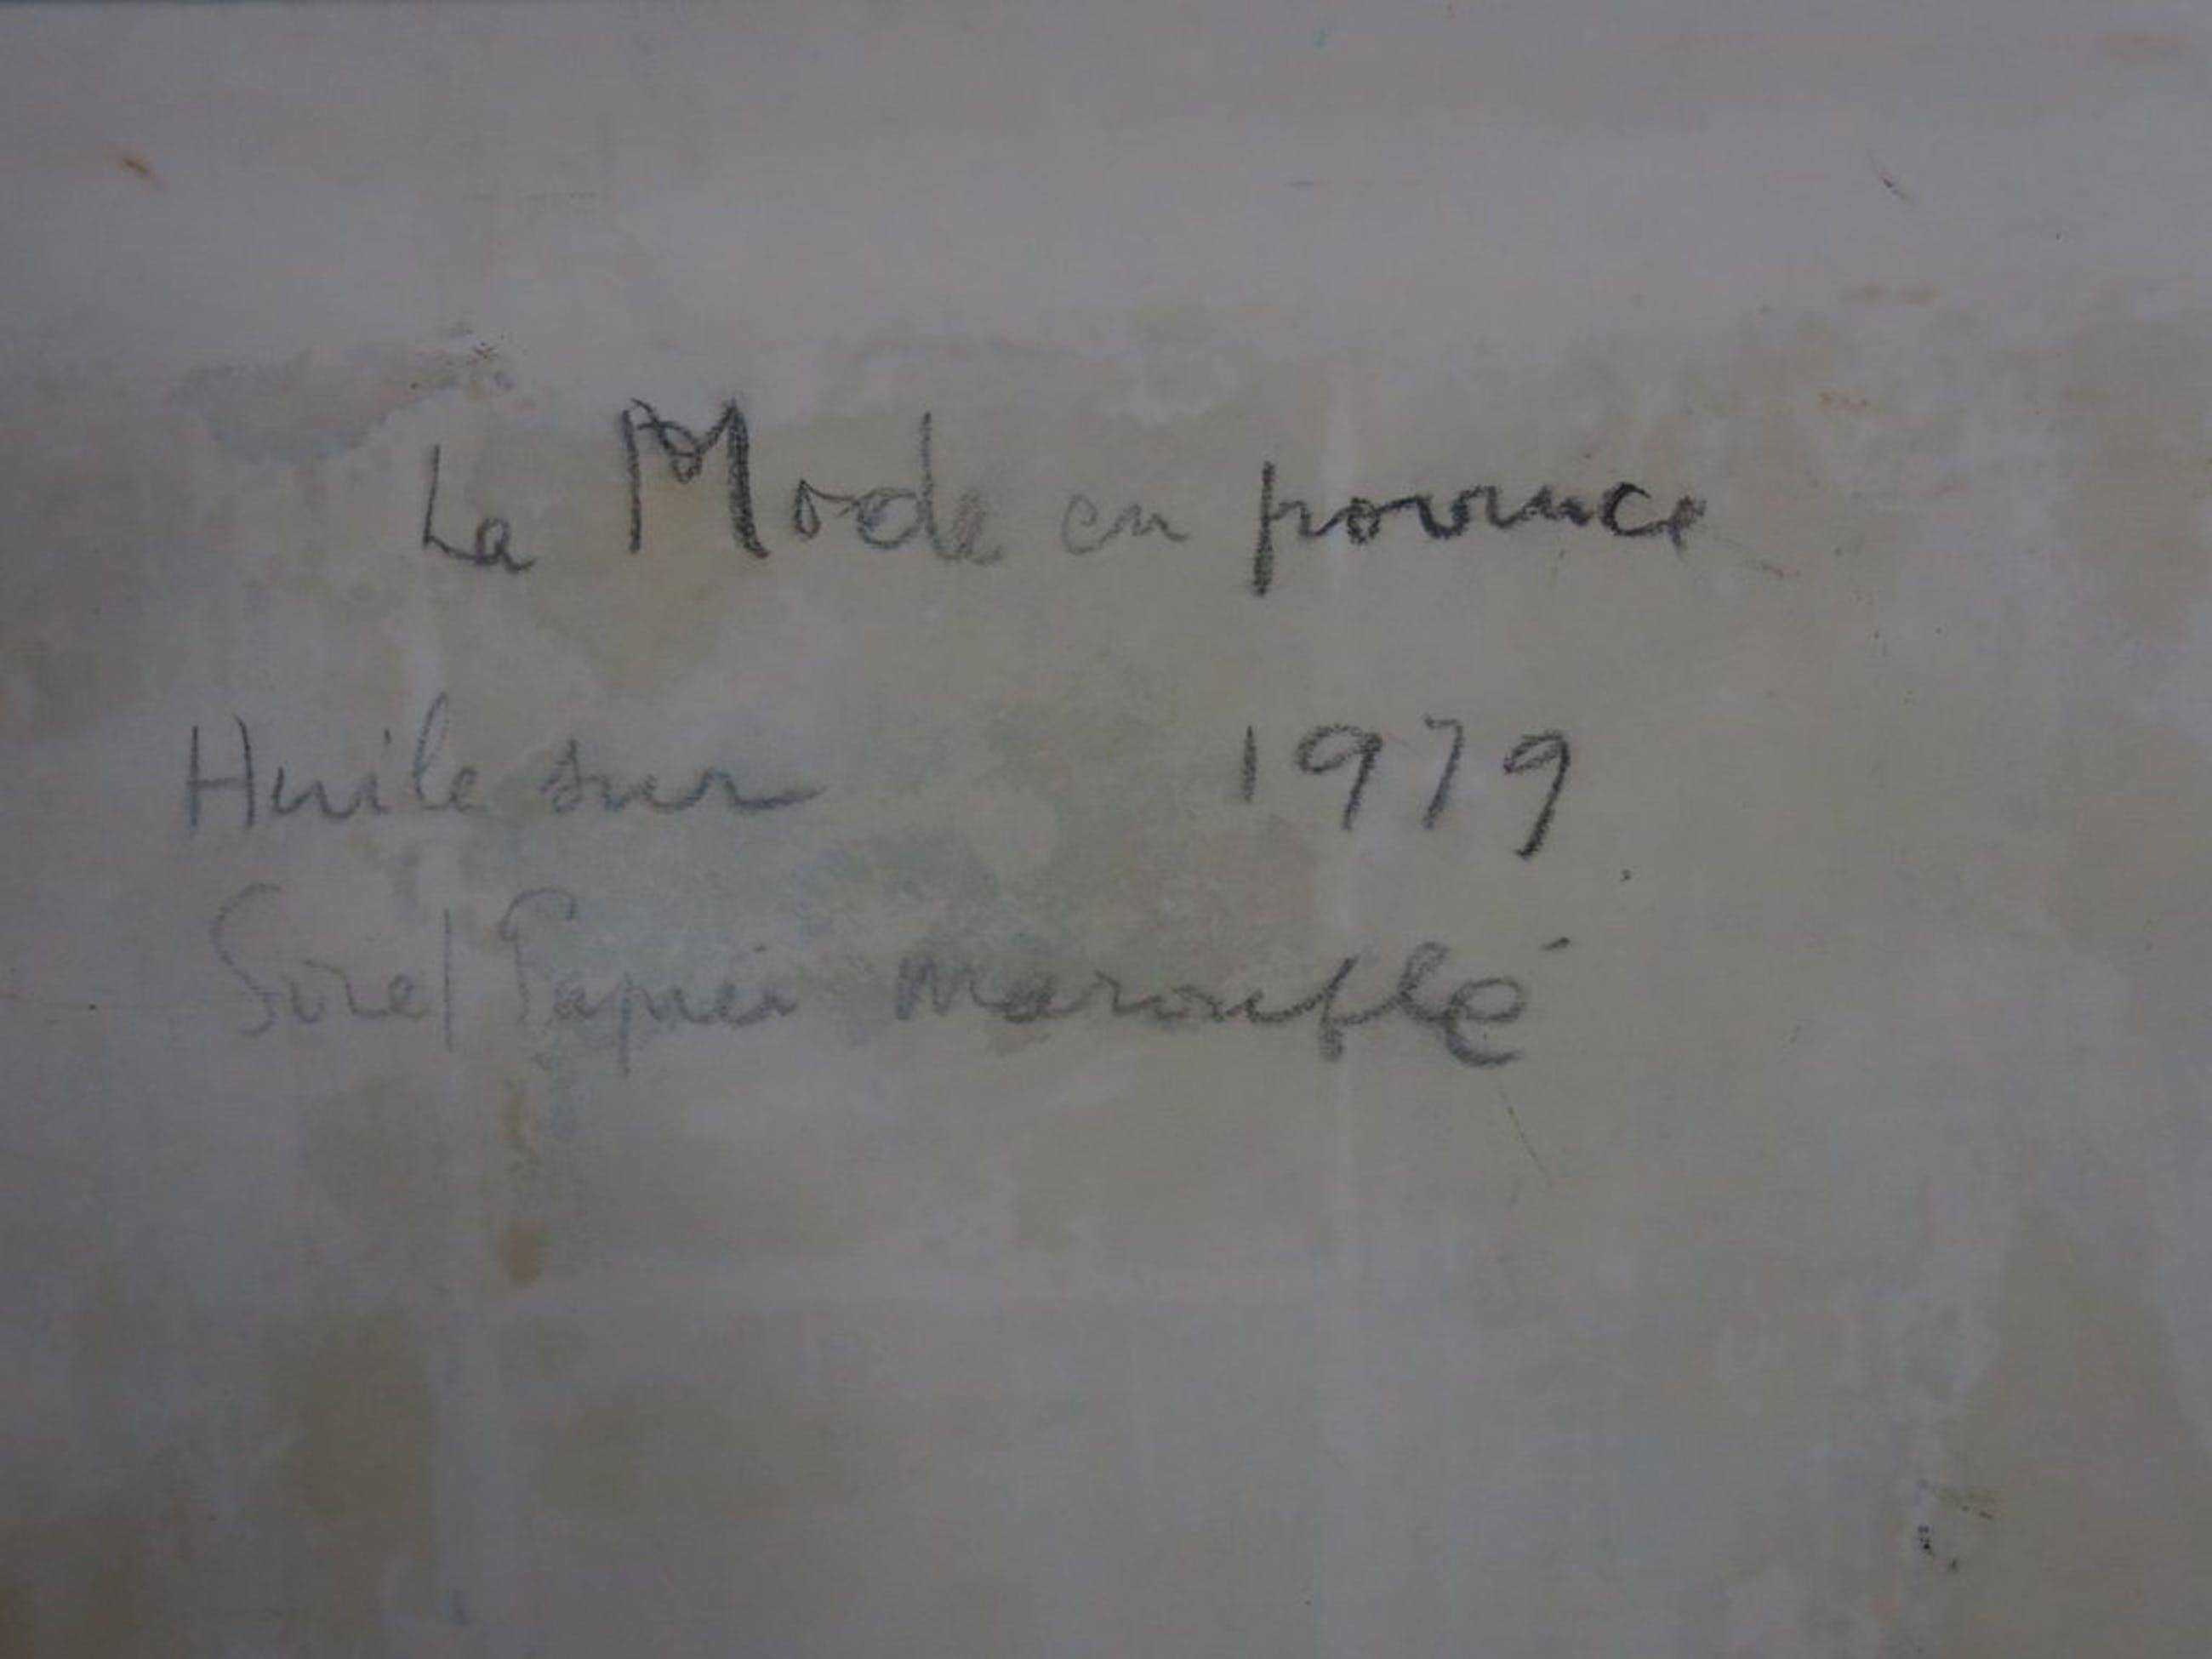 La Mode en province
Huile sur 1979
Papier marouflé